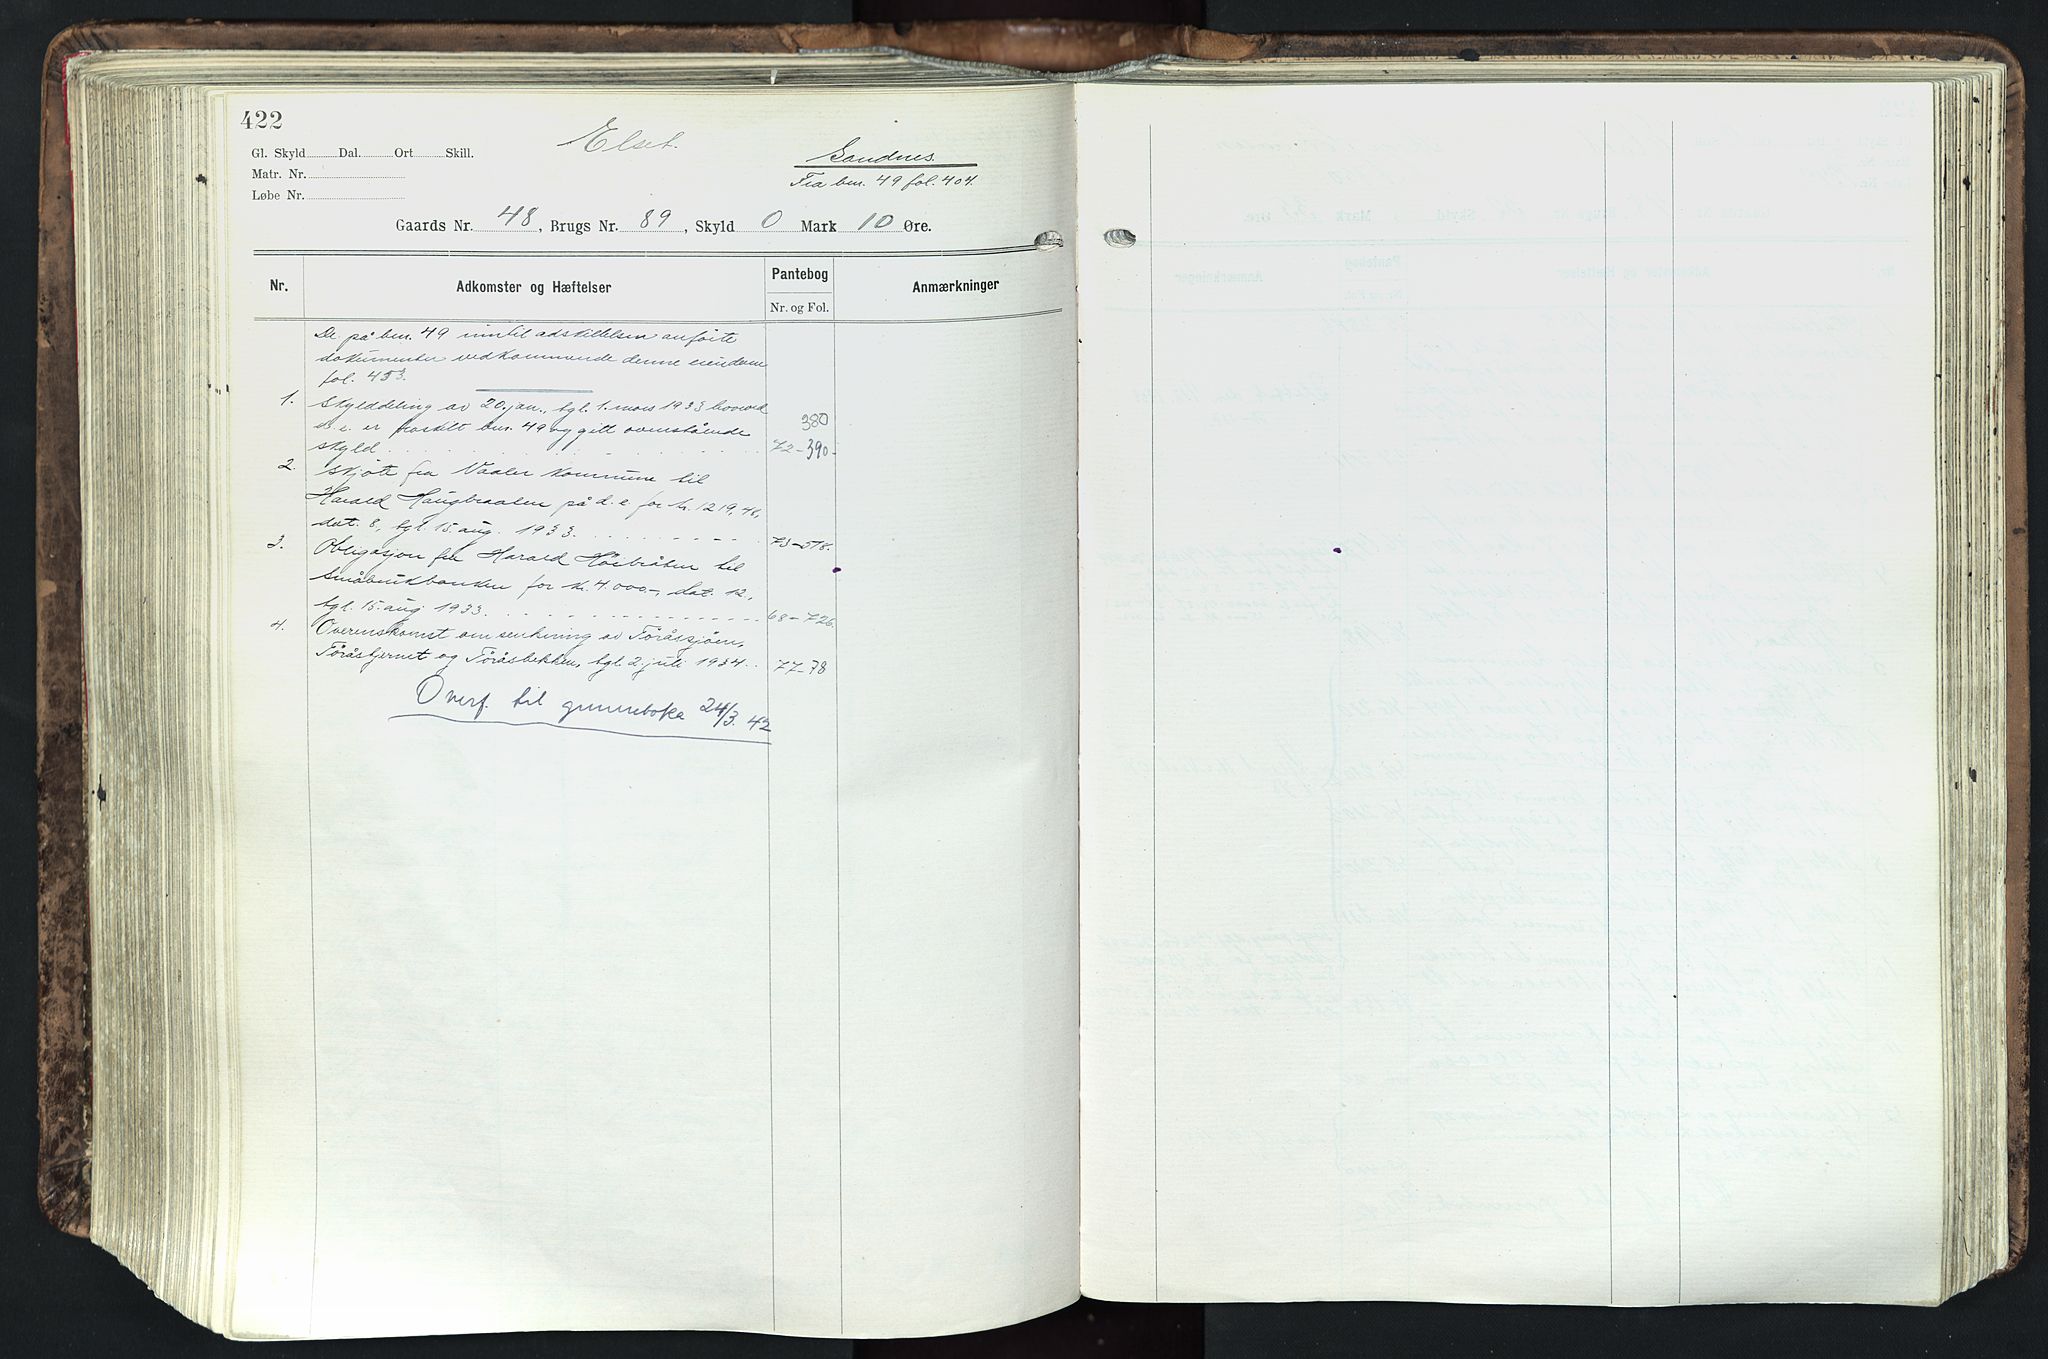 422
Elset.
Gl. Skyld Dal. Ort Skill.
Sandnes.
Matr. Nr.
Fra bnr. 49 fol. 404.
Løbe Nr.
Gaards Nr. 48, Brugs Nr. 89, Skyld 0 Mark 10 Øre.
Nr. Adkomster og Hæftelser Pantebog Anmærkninger
Nr. og Fol.
De på bnr. 49 inntil adskillelsen anførte
dokumenter vedkommende denne eiendom
fol. 453.
1. Skylddeling av 20. jan., tgl. 1. mars 1933 hvorved
d. e. er fraskilt bnr. 49 og gitt ovenstående 380
skyld 72-390
2. Skjøte fra Vaaler kommune til
Harald Haugbraaten på d. e for kr. 1219,46,
dat. 8, tgl. 15. aug. 1933. 73-518.
3. Obligasjon fra Harald til
Småbrukbanken for kr. 4.000,-, dat. 12.,
tgl. 15. aug. 1933. 68-726.
4. Overenskomst om senkning av Töråssjøen,
Töråstjernet og Töråsbekken, tgl. 2. juli 1934. 77-78
Overf. til grunnboka 24/3. 42